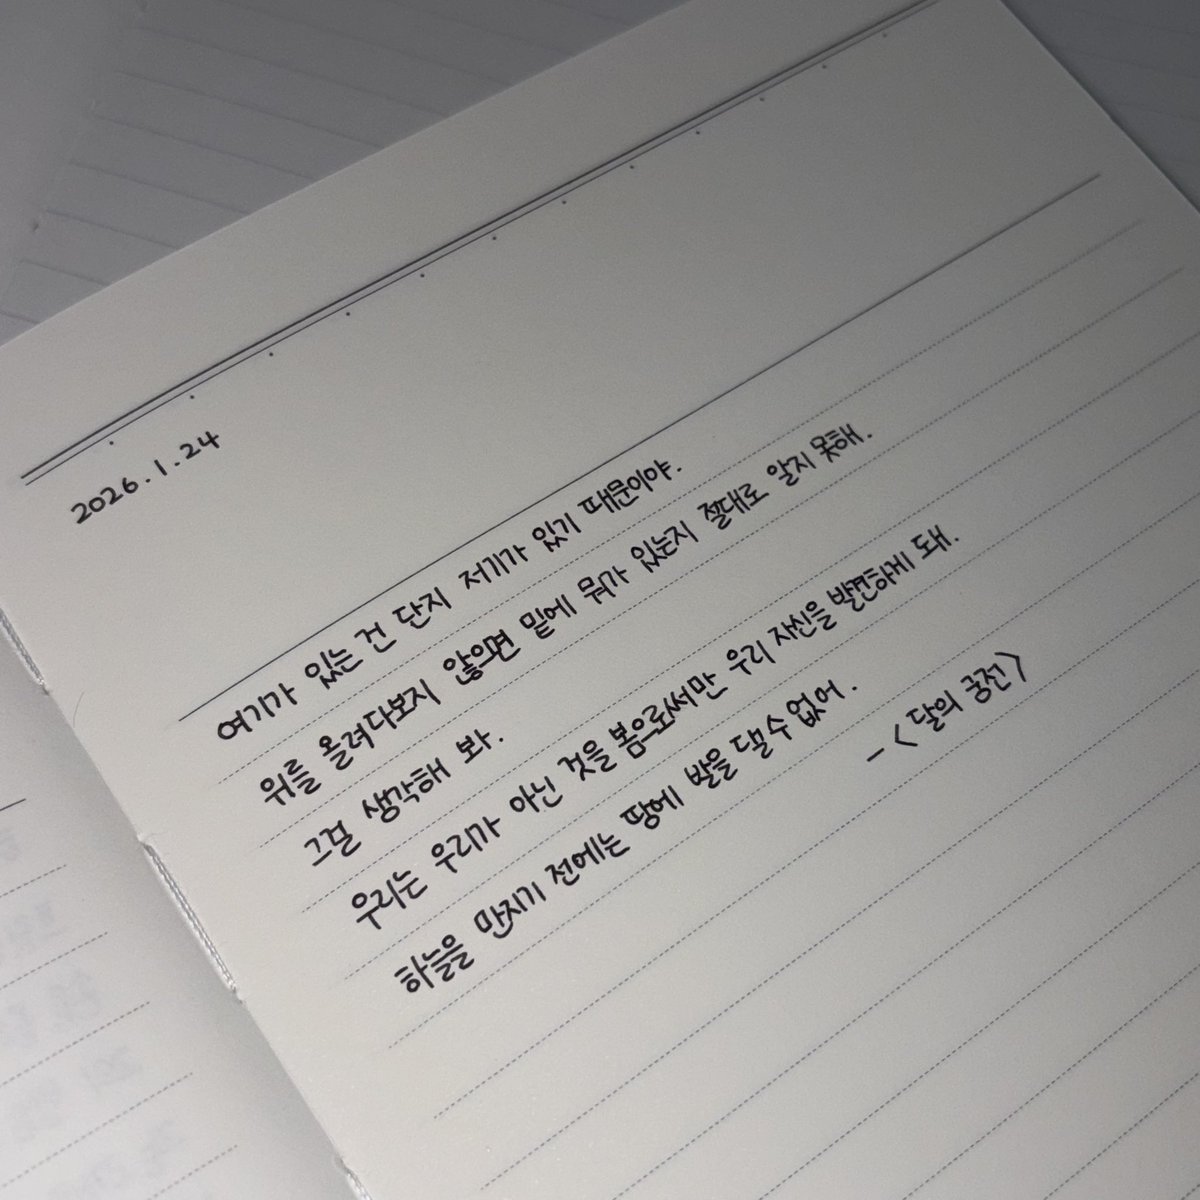 2026.1.24
여기가 있는 건 단지 저기가 있기 때문이야.
위를 올려다보지 않으면 밑에 뭐가 있는지 절대로 알지 못해.
그걸 생각해 봐.
우리는 우리가 아닌 것을 봄으로써만 우리 자신을 발견하게 돼.
하늘을 만지기 전에는 땅에 발을 댈 수 없어.
- <달의 궁전>